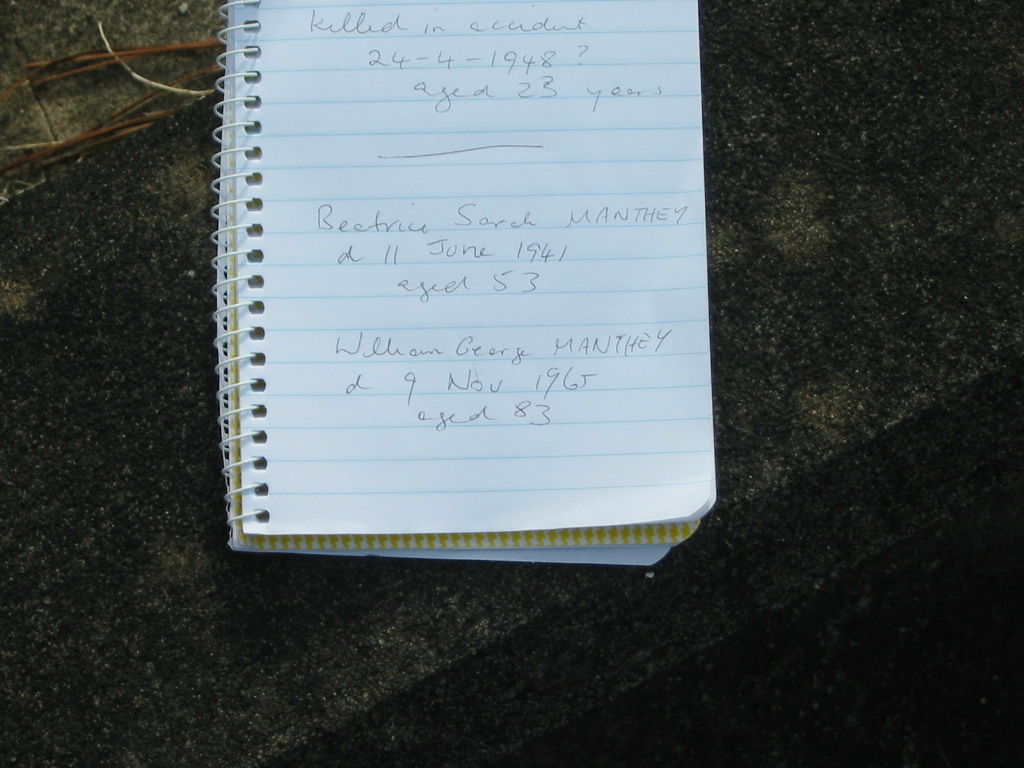 killed in accident
24-4-1948?
aged 23 years
Beatrice Sarah MANTHEY
d 11 June 1941
aged 53
William George MANTHEY
d 9 Nov 1965
aged 83